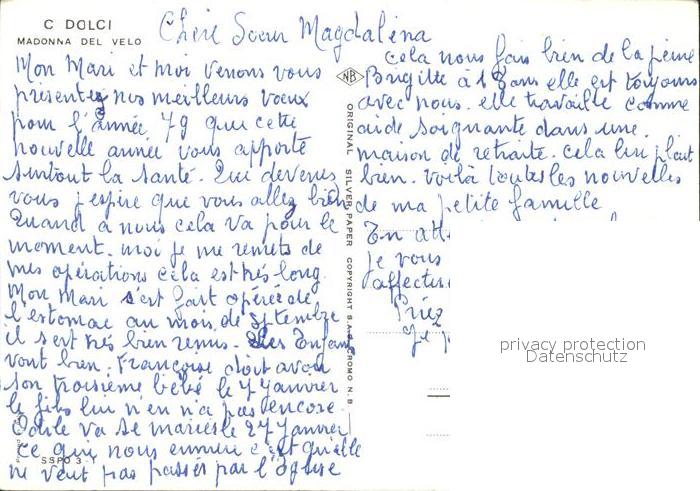 C DOLCI
MADONNA DEL VELO
Chère Soeur Magdalena
Mon Mari et moi venons vous
presentez nos meilleurs voeux
pour l'année 79 que cette
nouvelle année vous apporte
surtout la santé. Qui devenes
vous j'espire que vous allez bien
Quand a nous cela va pour le
moment. moi je me remets de
mes opérations cela est très long.
Mon Mari s'est fait opérée de
l'estomac au mois de septembre
il s'est très bien remis. Les Enfants
vont bien. Françoise doit avoir
son troisième bébé le 7 Janvier
le fils lui n'en n'a pas encore.
Odile va se marier le 27 Janvier
ce qui nous ennuie c'est qu'elle
ne veut pas passer par l'Eglise
SSPO 3
NB
ORIGINAL SILVER PAPER COPYRIGHT S.A.F. CROMO N.B.
Cela nous fais bien de la peine
Brigitte à 18 ans elle est toujours
avec nous. elle travaille comme
aide soignante dans une
maison de retraite. cela lui plait
bien. Voilà toutes les nouvelles
de ma petite famille
En att
je vous
affectu
Priez
je p
privacy protection
Datenschutz